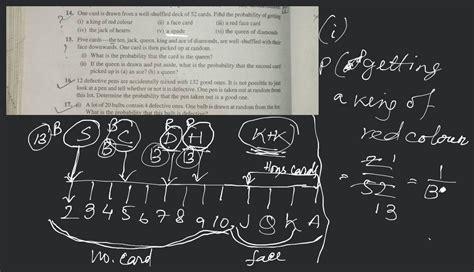 14. One card is drawn from a well-shuffled deck of 52 cards. Find the probability of getting
(i) a king of red colour (ii) a face card (iii) a red face card
(iv) the jack of hearts (v) a spade (vi) the queen of diamonds
15. Five cards—the ten, jack, queen, king and ace of diamonds, are well-shuffled with their
face downwards. One card is then picked up at random.
(i) What is the probability that the card is the queen?
(ii) If the queen is drawn and put aside, what is the probability that the second card
picked up is (a) an ace? (b) a queen?
16. 12 defective pens are accidentally mixed with 132 good ones. It is not possible to just
look at a pen and tell whether or not it is defective. One pen is taken out at random from
this lot. Determine the probability that the pen taken out is a good one.
17. (i) A lot of 20 bulbs contain 4 defective ones. One bulb is drawn at random from the lot.
What is the probability that this bulb is defective?
(i)
P ( of getting
a king of
red colour
= 2 1 / 52 13 = 1 / 13
13 B S B C B D B H K+K
13 13
Hons cards
2 3 4 5 6 7 8 9 10 J Q K A
no. card face